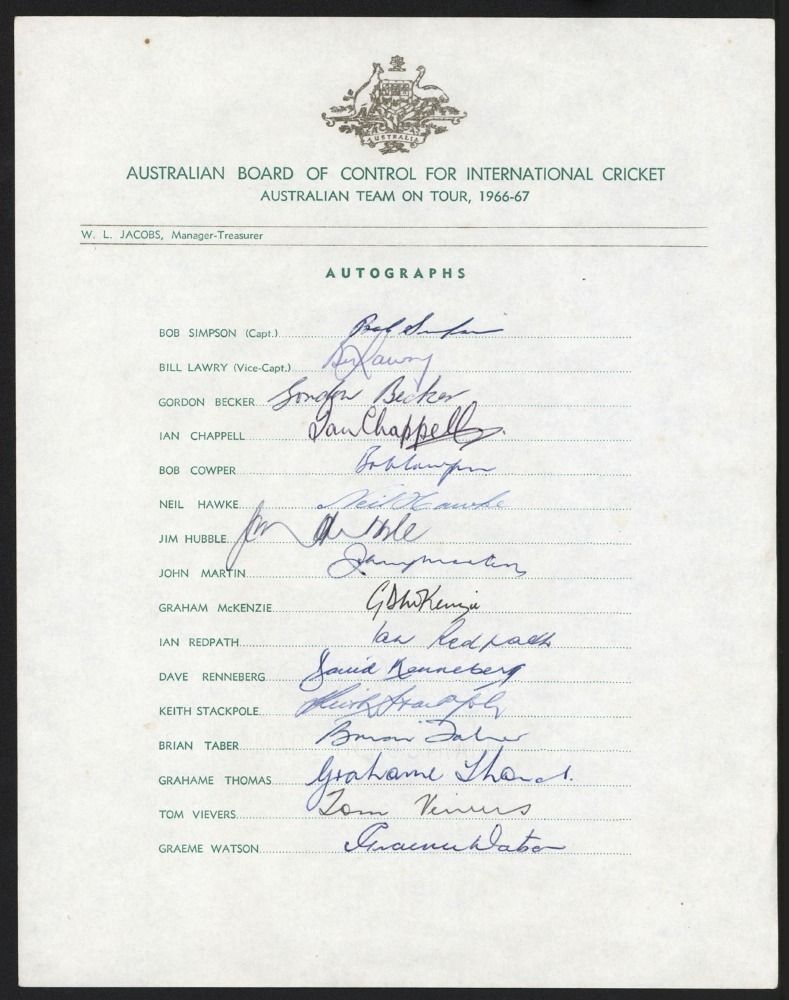 AUSTRALIA
AUSTRALIAN BOARD OF CONTROL FOR INTERNATIONAL CRICKET
AUSTRALIAN TEAM ON TOUR, 1966-67
W. L. JACOBS, Manager-Treasurer
AUTOGRAPHS
BOB SIMPSON (Capt.) Bob Simpson
BILL LAWRY (Vice-Capt.) Bill Lawry
GORDON BECKER Gordon Becker
IAN CHAPPELL Ian Chappell
BOB COWPER Bob Cowper
NEIL HAWKE Neil Hawke
JIM HUBBLE Jim Hubble
JOHN MARTIN Johnny Martin
GRAHAM McKENZIE G D McKenzie
IAN REDPATH Ian Redpath
DAVE RENNEBERG David Renneberg
KEITH STACKPOLE Keith Stackpole
BRIAN TABER Brian Taber
GRAHAME THOMAS Grahame Thomas.
TOM VIEVERS Tom Veivers
GRAEME WATSON Graeme Watson